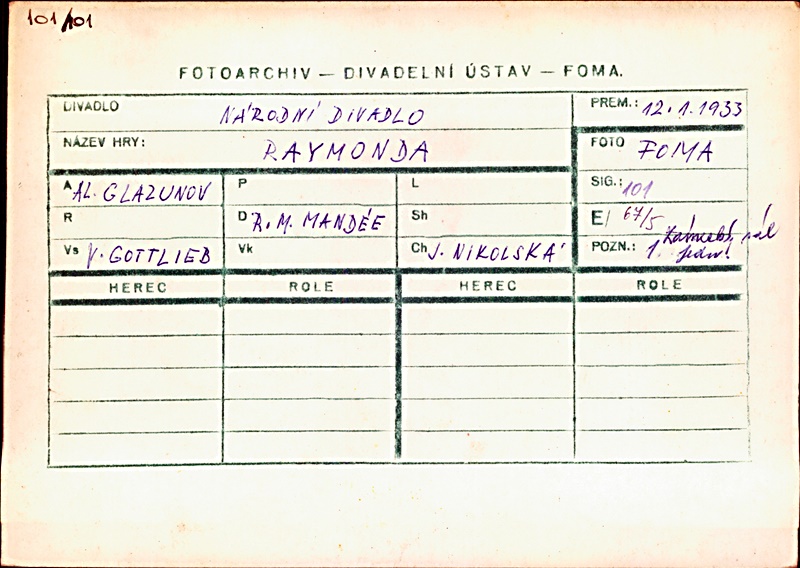 101/101
FOTOARCHIV — DIVADELNÍ ÚSTAV — FOMA.
DIVADLO NÁRODNÍ DIVADLO PREM.: 12.1.1933
NÁZEV HRY: RAYMONDA FOTO FOMA
A AL. GLAZUNOV P L SIG.: 101
R D R. M. MANDÉE Sh E/ 67/5
Vs V. GOTTLIEB Vk Ch J. NIKOLSKÁ POZN.: 1.
HEREC ROLE HEREC ROLE